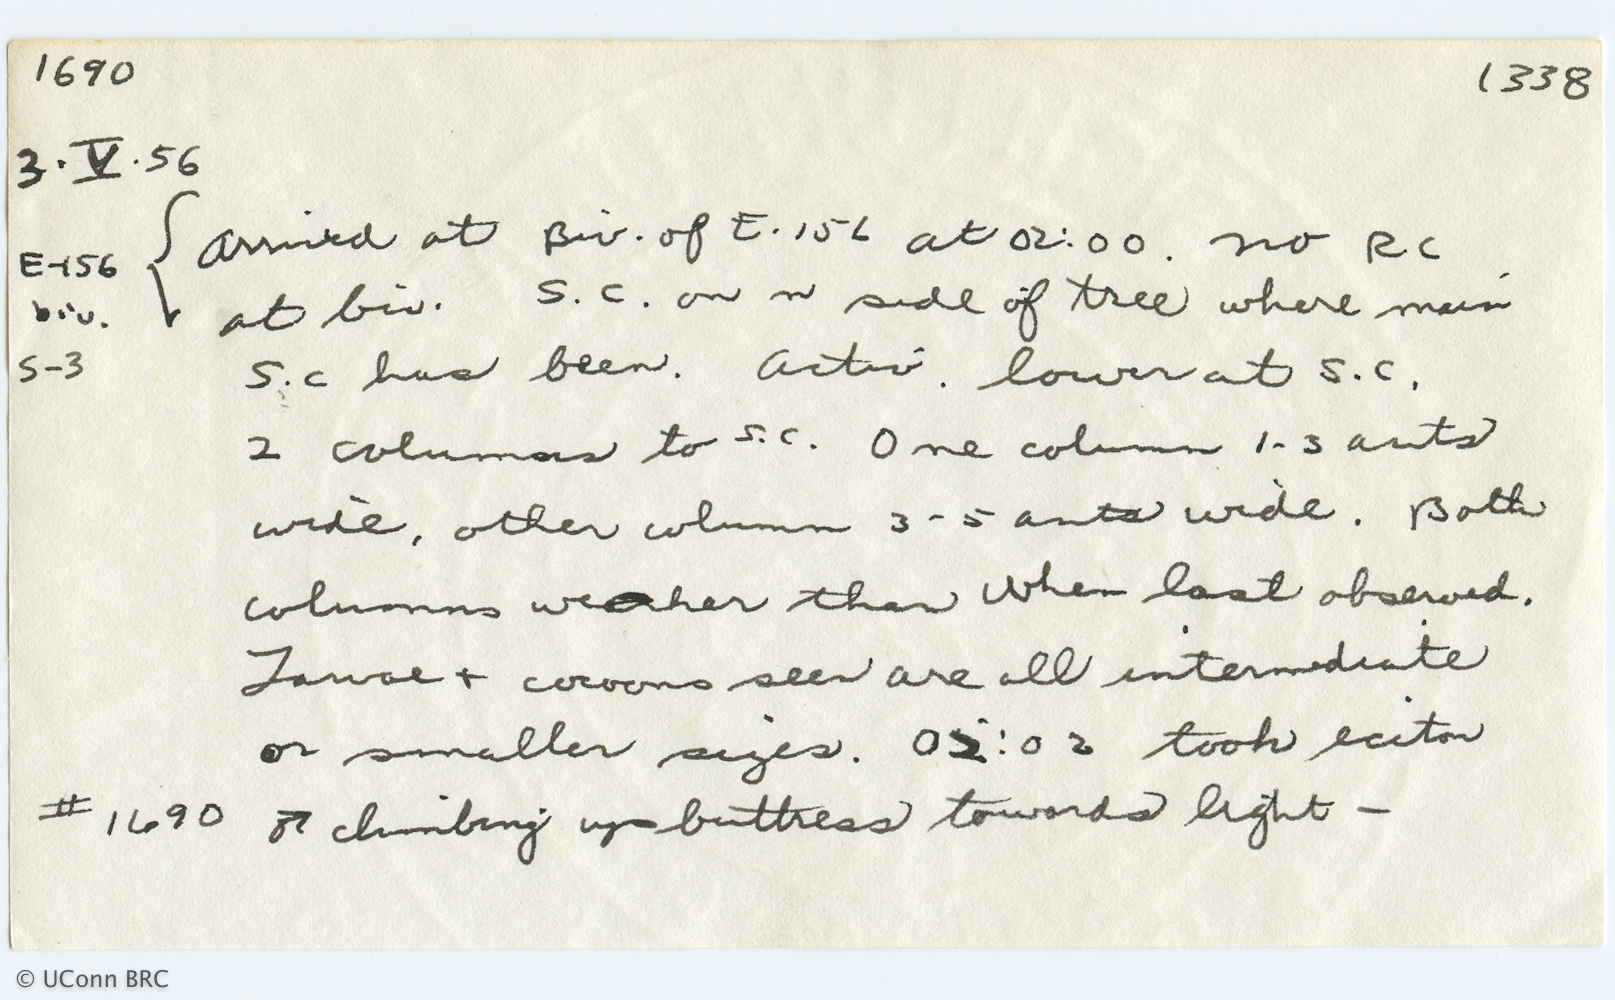 1690 1338
3·V·56
E-156 { Arrived at Biv. of E.156 at 02:00. no RC
biv. at biv. S.C. on n side of tree where main
S-3 S.C has been. Activ. lower at S.C.
2 columns to S.C. One column 1-3 ants
wide, other column 3-5 ants wide. Both
columns weaker than when last observed.
Larvae + cocoons seen are all intermediate
or smaller sizes. 02:02 took eciton
#1690 ♂ climbing up buttress towards light —
© UConn BRC